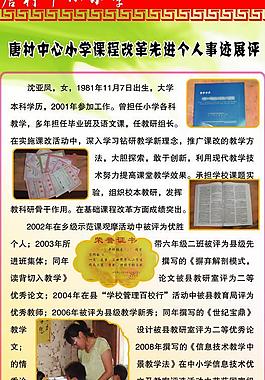 唐村中心小学
唐村中心小学课程改革先进个人事迹展评
沈亚凤，女，1981年11月7日出生，大学
本科学历，2001年参加工作。曾担任小学各科
教学，多年担任毕业班及语文课，任教研组长。
在实施课改活动中，深入学习钻研教学新理念，推广课改的教学方
法，大胆探索，敢于创新，利用现代教学技
术努力提高课堂教学效果。承担学校课题实
验，组织校本教研，发挥
教科研骨干作用。在基础课程改革方面成绩突出。
2002年在乡级示范课观摩活动中被评为优胜
个人；2003年所
荣誉证书
带六年级二班被评为县级先
进班集体；同年
撰写的《摒弃解剖模式，
读背切入教学》
论文被县教研室评为二等
优秀论文；2004年在县“学校管理百校行”活动中被县教育局评为
优秀教师；2006年被评为县级教学新秀；同年撰写的《世纪宝鼎》
教学
设计被县教研室评为二等优秀论文；
2008年撰写的《信息技术教学中
情
景教学法》在中小学信息技术优